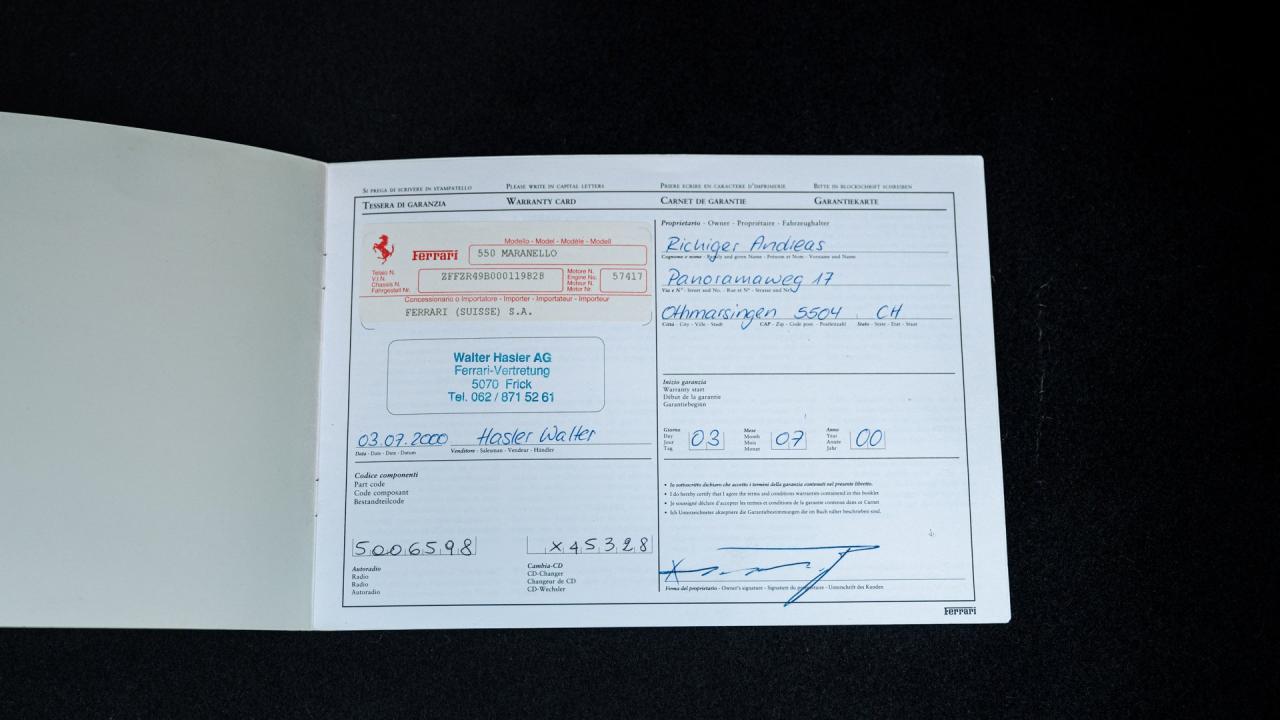 SI PREGA DI SCRIVERE IN STAMPATELLO PLEASE WRITE IN CAPITAL LETTERS PRIERE ECRIRE EN CARACTERE D'IMPRIMERIE BITTE IN BLOCKSCHRIFT SCHREIBEN
TESSERA DI GARANZIA WARRANTY CARD CARNET DE GARANTIE GARANTIEKARTE
Modello - Model - Modèle - Modell
Ferrari 550 MARANELLO
Telaio N.
V.I.N.
Chassis N.
Fahrgestell Nr.
ZFFZR49B000119828
Motore N.
Engine No.
Moteur N.
Motor Nr.
57417
Concessionario o Importatore - Importer - Importateur - Importeur
FERRARI (SUISSE) S.A.
Walter Hasler AG
Ferrari-Vertretung
5070 Frick
Tel. 062 / 871 52 61
03.07.2000 Hasler Walter
Data - Date - Date - Datum Venditore - Salesman - Vendeur - Händler
Codice componenti
Part code
Code composant
Bestandteilcode
5006598 X45328
Autoradio
Radio
Radio
Autoradio
Cambia-CD
CD-Changer
Changeur de CD
CD-Wechsler
Proprietario - Owner - Propriétaire - Fahrzeughalter
Richiger Andreas
Cognome e nome - Family and given Name - Prénom et Nom - Vorname und Name
Panoramaweg 17
Via e N° - Street und No. - Rue et N° - Strasse und Nr.
Othmarsingen 5504 CH
Città - City - Ville - Stadt CAP - Zip - Code post - Postleitzahl Stato - State - Etat - Staat
Inizio garanzia
Warranty start
Début de la garantie
Garantiebeginn
Giorno
Day
Jour
Tag
03
Mese
Month
Mois
Monat
07
Anno
Year
Année
Jahr
00
• Io sottoscritto dichiaro che accetto i termini della garanzia contenuti nel presente libretto.
• I do hereby certify that I agree the terms and conditions warranties containend in this booklet
• Je soussigné déclare d'accepter les termes et conditions de la garantie contenus dans ce Carnet
• Ich Unterzeichneter akzeptiere die Garantiebestimmungen die im Buch näher beschrieben sind.
Firma del proprietario - Owner's signature - Signature du propriétaire - Unterschrift des Kunden
Ferrari